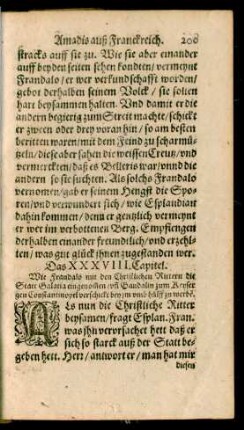 Amadis auß Franckreich. 200
stracks auff sie zu. Wie sie aber einander
auff beyden seiten sehen kondten / vermeynt
Frandalo / er wer verkundschafft worden /
gebot derhalben seinem Volck / sie solten
hart beysammen halten. Vnd damit er die
andern begierig zum Streit machte / schickt
er zween oder drey voran hin / so am besten
beritten waren / mit dem Feind zu scharmü-
tzeln / diese aber sahen die weissen Creutz / vnd
vermerckten / daß es Belleris war / vnnd die
andern so sie suchten. Als solchs Frandalo
vernomen / gab er seinem Hengst die Spo-
ren / vnd verwundert sich / wie Esplandian
dahin kommen / denn er gentzlich vermeynt
er wer im verbottenen Berg. Empfiengen
derhalben einander freundtlich / vnd erzehl-
ten / was gut glück jhnen zugestanden wer.
Das XXXVIII. Capitel.
Wie Frandalo mit den Christlichen Rittern die
Statt Galatia eingenommen / vñ Gandalin zum Keyser
gen Constantinopel verschickt
ALs nun die Christliche Ritter
beysamen / fragt Esplan. Fran.
was jhn verursachet hett daß er
sich so starck auß der Statt be-
geben hett. Herr / antwort er / man hat mir
diesen